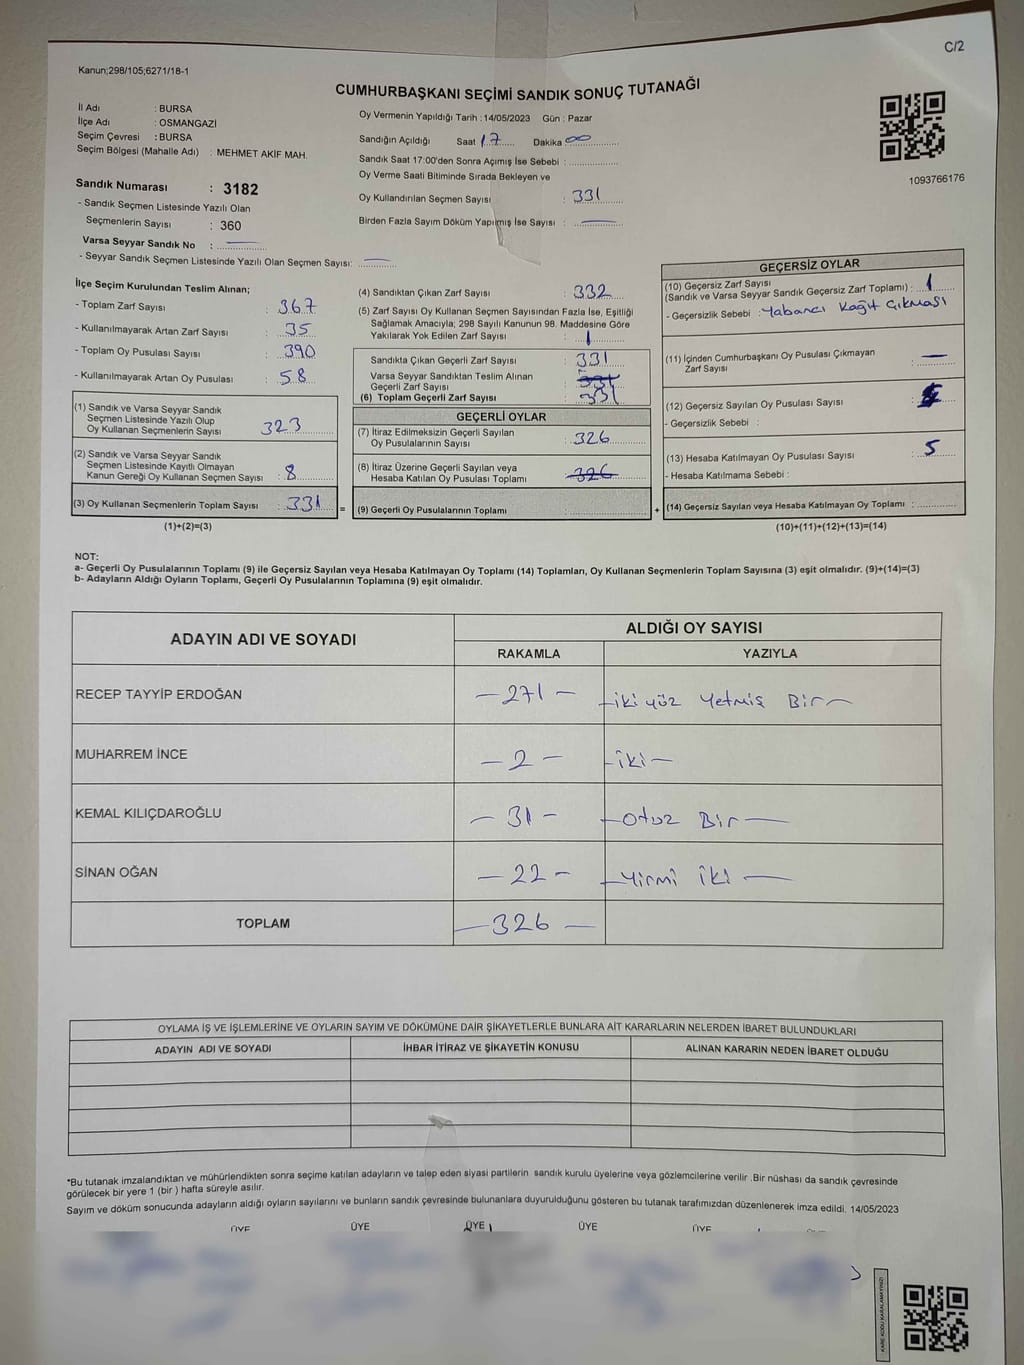 C/2
Kanun;298/105;6271/18-1
CUMHURBAŞKANI SEÇİMİ SANDIK SONUÇ TUTANAĞI
İl Adı : BURSA
İlçe Adı : OSMANGAZİ
Seçim Çevresi : BURSA
Seçim Bölgesi (Mahalle Adı) : MEHMET AKİF MAH.
Sandık Numarası : 3182
- Sandık Seçmen Listesinde Yazılı Olan
Seçmenlerin Sayısı : 360
Varsa Seyyar Sandık No :
- Seyyar Sandık Seçmen Listesinde Yazılı Olan Seçmen Sayısı:
Oy Vermenin Yapıldığı Tarih : 14/05/2023 Gün : Pazar
Sandığın Açıldığı Saat 17 Dakika 00
Sandık Saat 17:00'den Sonra Açımış İse Sebebi :
Oy Verme Saati Bitiminde Sırada Bekleyen ve
Oy Kullandırılan Seçmen Sayısı : 331
Birden Fazla Sayım Döküm Yapılmış İse Sayısı :
1093766176
İlçe Seçim Kurulundan Teslim Alınan;
- Toplam Zarf Sayısı : 367
- Kullanılmayarak Artan Zarf Sayısı : 35
- Toplam Oy Pusulası Sayısı : 390
- Kullanılmayarak Artan Oy Pusulası : 58
(1) Sandık ve Varsa Seyyar Sandık
Seçmen Listesinde Yazılı Olup
Oy Kullanan Seçmenlerin Sayısı 323
(2) Sandık ve Varsa Seyyar Sandık
Seçmen Listesinde Kayıtlı Olmayan
Kanun Gereği Oy Kullanan Seçmen Sayısı : 8
(3) Oy Kullanan Seçmenlerin Toplam Sayısı : 331 =
(1)+(2)=(3)
(4) Sandıktan Çıkan Zarf Sayısı : 332
(5) Zarf Sayısı Oy Kullanan Seçmen Sayısından Fazla İse, Eşitliği
Sağlamak Amacıyla; 298 Sayılı Kanunun 98. Maddesine Göre
Yakılarak Yok Edilen Zarf Sayısı : 1
Sandıkta Çıkan Geçerli Zarf Sayısı : 331
Varsa Seyyar Sandıktan Teslim Alınan
Geçerli Zarf Sayısı : 331
(6) Toplam Geçerli Zarf Sayısı : 331
GEÇERLİ OYLAR
(7) İtiraz Edilmeksizin Geçerli Sayılan
Oy Pusulalarının Sayısı : 326
(8) İtiraz Üzerine Geçerli Sayılan veya
Hesaba Katılan Oy Pusulası Toplamı : 326
(9) Geçerli Oy Pusulalarının Toplamı +
GEÇERSİZ OYLAR
(10) Geçersiz Zarf Sayısı
(Sandık ve Varsa Seyyar Sandık Geçersiz Zarf Toplamı) : 1
- Geçersizlik Sebebi : Yabancı Kağıt Çıkması
(11) İçinden Cumhurbaşkanı Oy Pusulası Çıkmayan
Zarf Sayısı :
(12) Geçersiz Sayılan Oy Pusulası Sayısı :
- Geçersizlik Sebebi :
(13) Hesaba Katılmayan Oy Pusulası Sayısı : 5
- Hesaba Katılmama Sebebi :
(14) Geçersiz Sayılan veya Hesaba Katılmayan Oy Toplamı :
(10)+(11)+(12)+(13)=(14)
NOT:
a- Geçerli Oy Pusulalarının Toplamı (9) ile Geçersiz Sayılan veya Hesaba Katılmayan Oy Toplamı (14) Toplamları, Oy Kullanan Seçmenlerin Toplam Sayısına (3) eşit olmalıdır. (9)+(14)=(3)
b- Adayların Aldığı Oyların Toplamı, Geçerli Oy Pusulalarının Toplamına (9) eşit olmalıdır.
ADAYIN ADI VE SOYADI ALDIĞI OY SAYISI
RAKAMLA YAZIYLA
RECEP TAYYİP ERDOĞAN - 271 - - iki yüz Yetmiş Bir -
MUHARREM İNCE - 2 - - iki -
KEMAL KILIÇDAROĞLU - 31 - - Otuz Bir -
SİNAN OĞAN - 22 - - Yirmi iki -
TOPLAM - 326 -
OYLAMA İŞ VE İŞLEMLERİNE VE OYLARIN SAYIM VE DÖKÜMÜNE DAİR ŞİKAYETLERLE BUNLARA AİT KARARLARIN NELERDEN İBARET BULUNDUKLARI
ADAYIN ADI VE SOYADI İHBAR İTİRAZ VE ŞİKAYETİN KONUSU ALINAN KARARIN NEDEN İBARET OLDUĞU
*Bu tutanak imzalandıktan ve mühürlendikten sonra seçime katılan adayların ve talep eden siyasi partilerin sandık kurulu üyelerine veya gözlemcilerine verilir .Bir nüshası da sandık çevresinde
görülecek bir yere 1 (bir ) hafta süreyle asılır.
Sayım ve döküm sonucunda adayların aldığı oyların sayılarını ve bunların sandık çevresinde bulunanlara duyurulduğunu gösteren bu tutanak tarafımızdan düzenlenerek imza edildi. 14/05/2023
ÜYE ÜYE ÜYE ÜYE ÜYE
KARE KODU KARALAMAYINIZ!